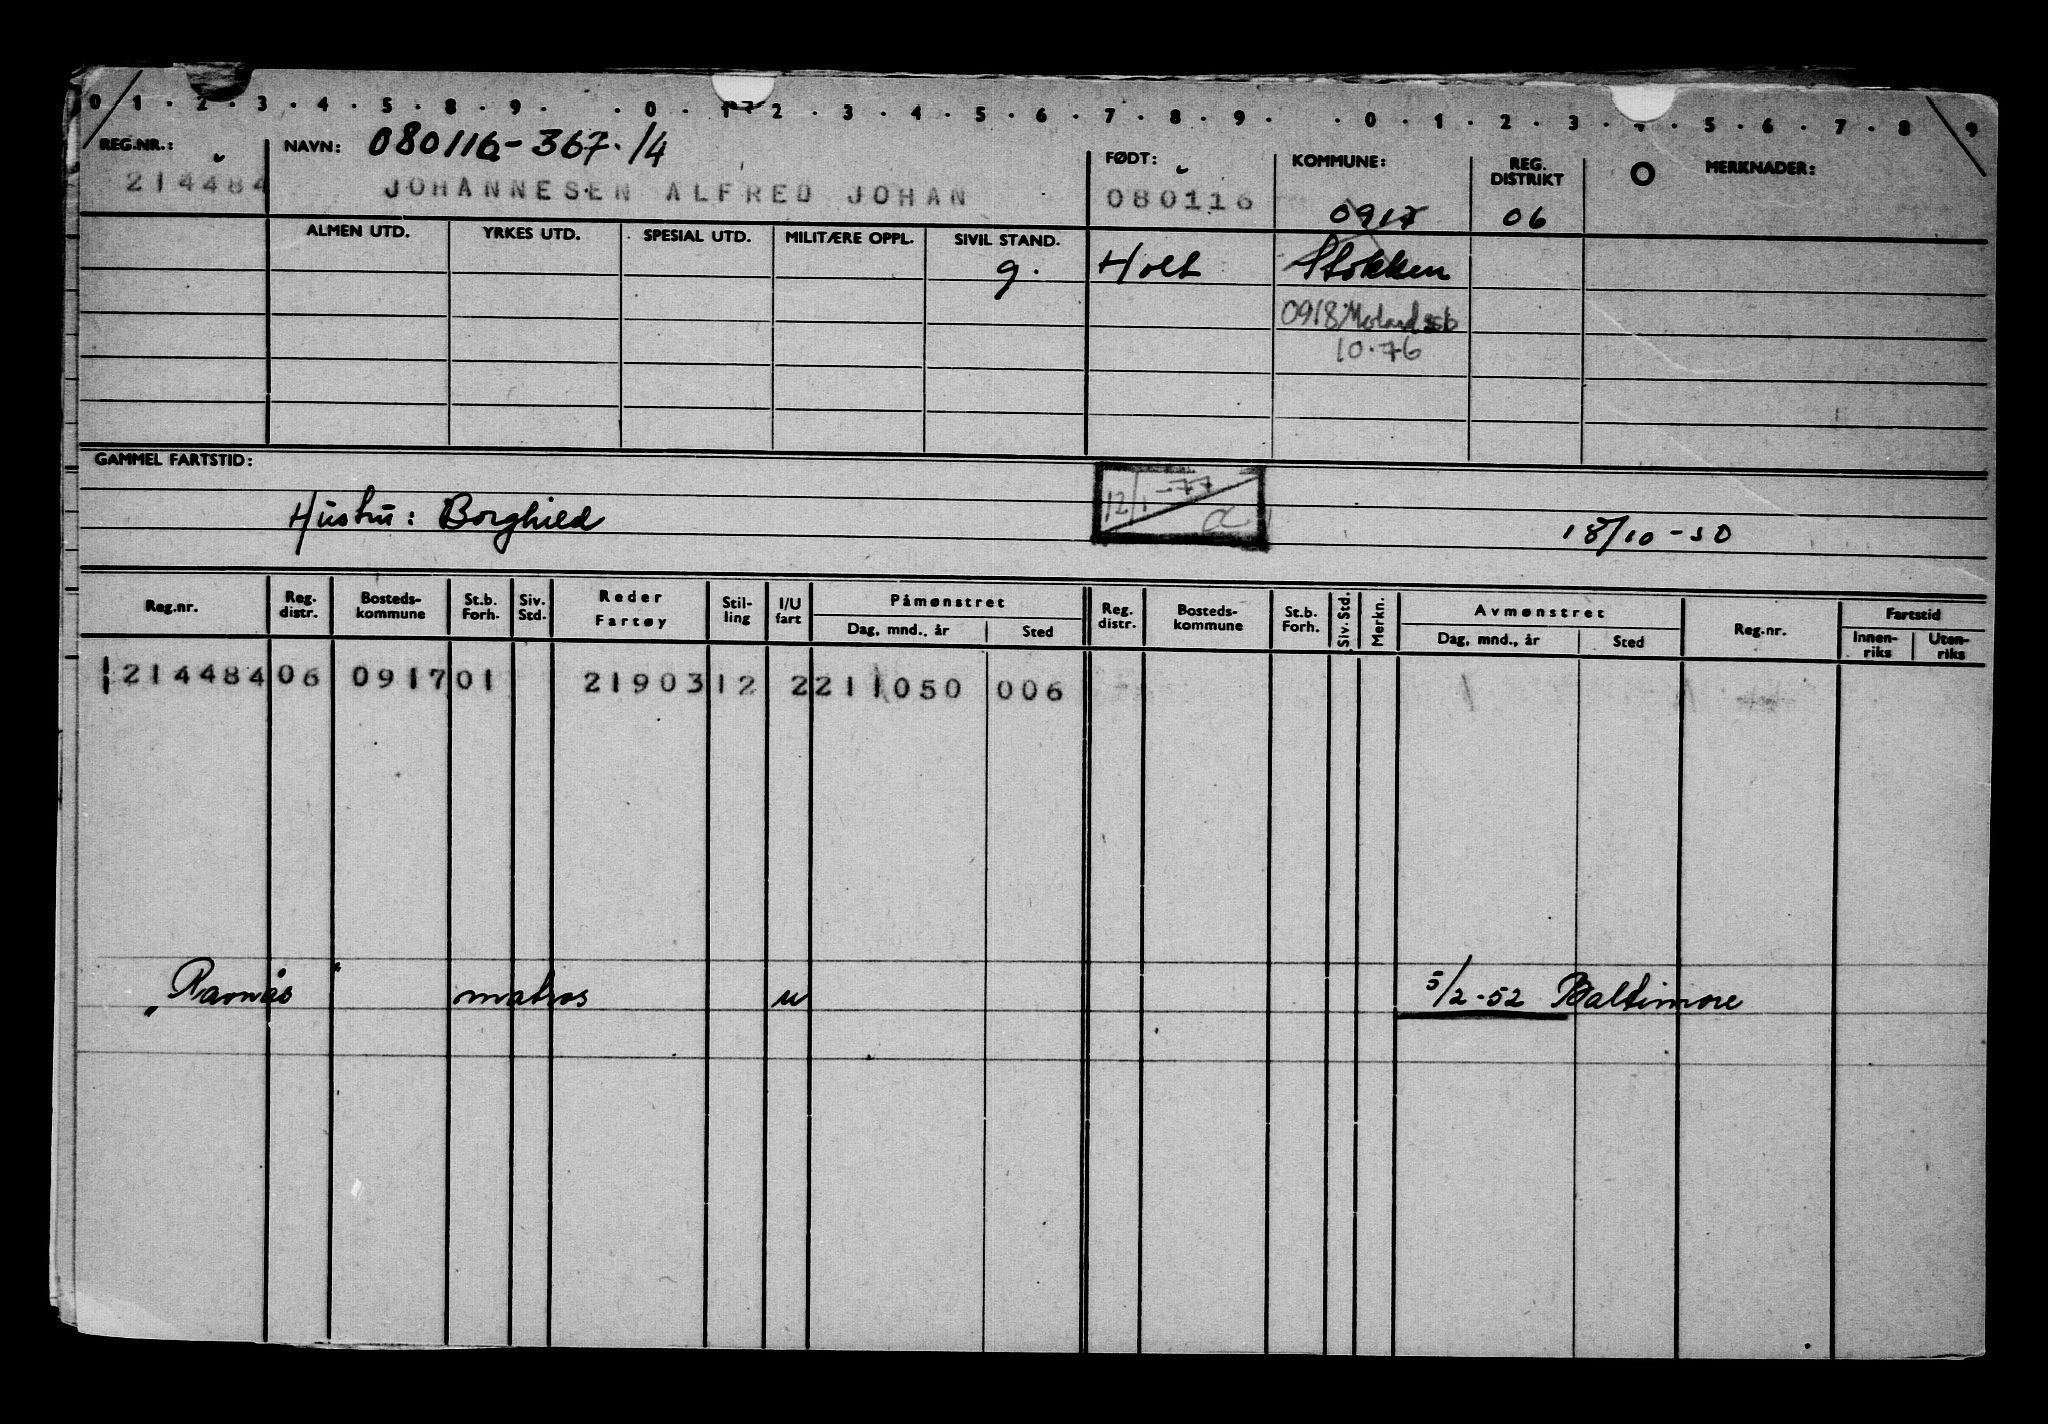 0 1 . 2 . 3 . 4 . 5 . 8 . 9 . . 0 . 1 2 . 3 . 4 . 5 . 6 . 7 . 8 . 9 . . 0 . 1 . 2 . 3 . 4 . 5 . 6 . 7 . 8 9
REG.NR.: NAVN: 080116-367./4 FØDT: KOMMUNE: REG. DISTRIKT O MERKNADER:
214484 JOHANNESEN ALFRED JOHAN 080116 0917 06
ALMEN UTD. YRKES UTD. SPESIAL UTD. MILITÆRE OPPL. SIVIL STAND.
g. Holt Stokken
0918 Moland
10.76
GAMMEL FARTSTID:
12/1 -77
Hustru: Borghild 18/10-50
Reg.nr. Reg. distr. Bosteds-kommune St.b. Forh. Siv. Std. Reder Fartøy Stil-ling I/U fart Påmønstret Reg. distr. Bosteds-kommune St.b. Forh. Siv. Std. Merkn. Avmønstret Reg.nr. Fartstid
Dag, mnd., år Sted Dag, mnd., år Sted Innen-riks Uten-riks
214484 06 0917 01 21903 12 2 211050 006
"Parnås" matros u 5/2-52 Baltimore